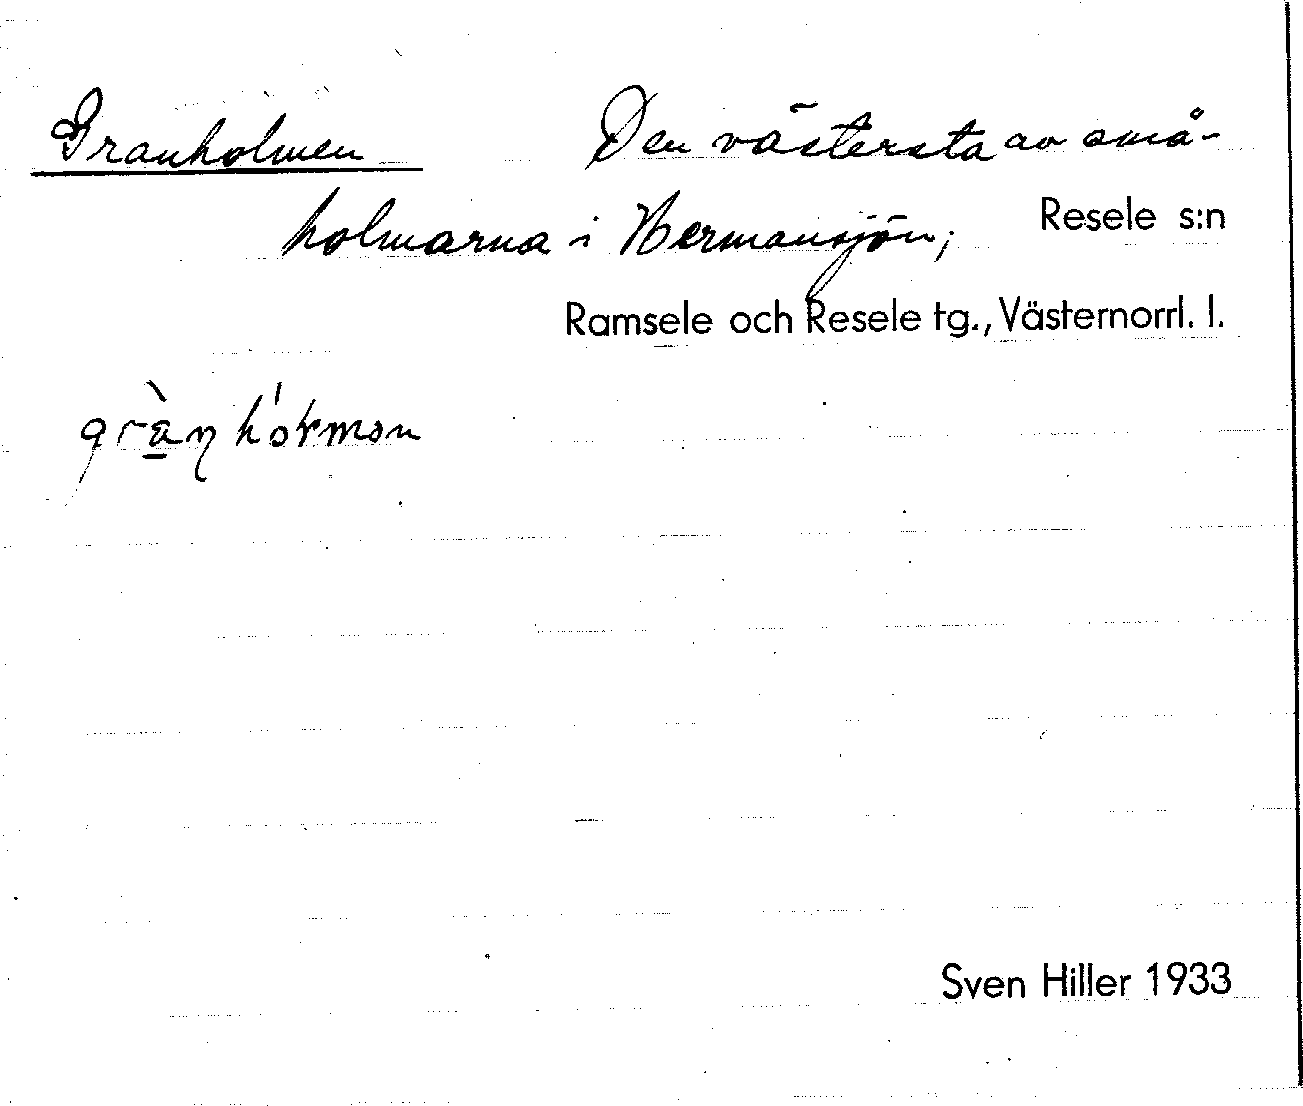 Granholmen Den västersta av små-
holmarna i Hermansjön; Resele s:n
Ramsele och Resele tg., Västernorrl. l.
Sven Hiller 1933